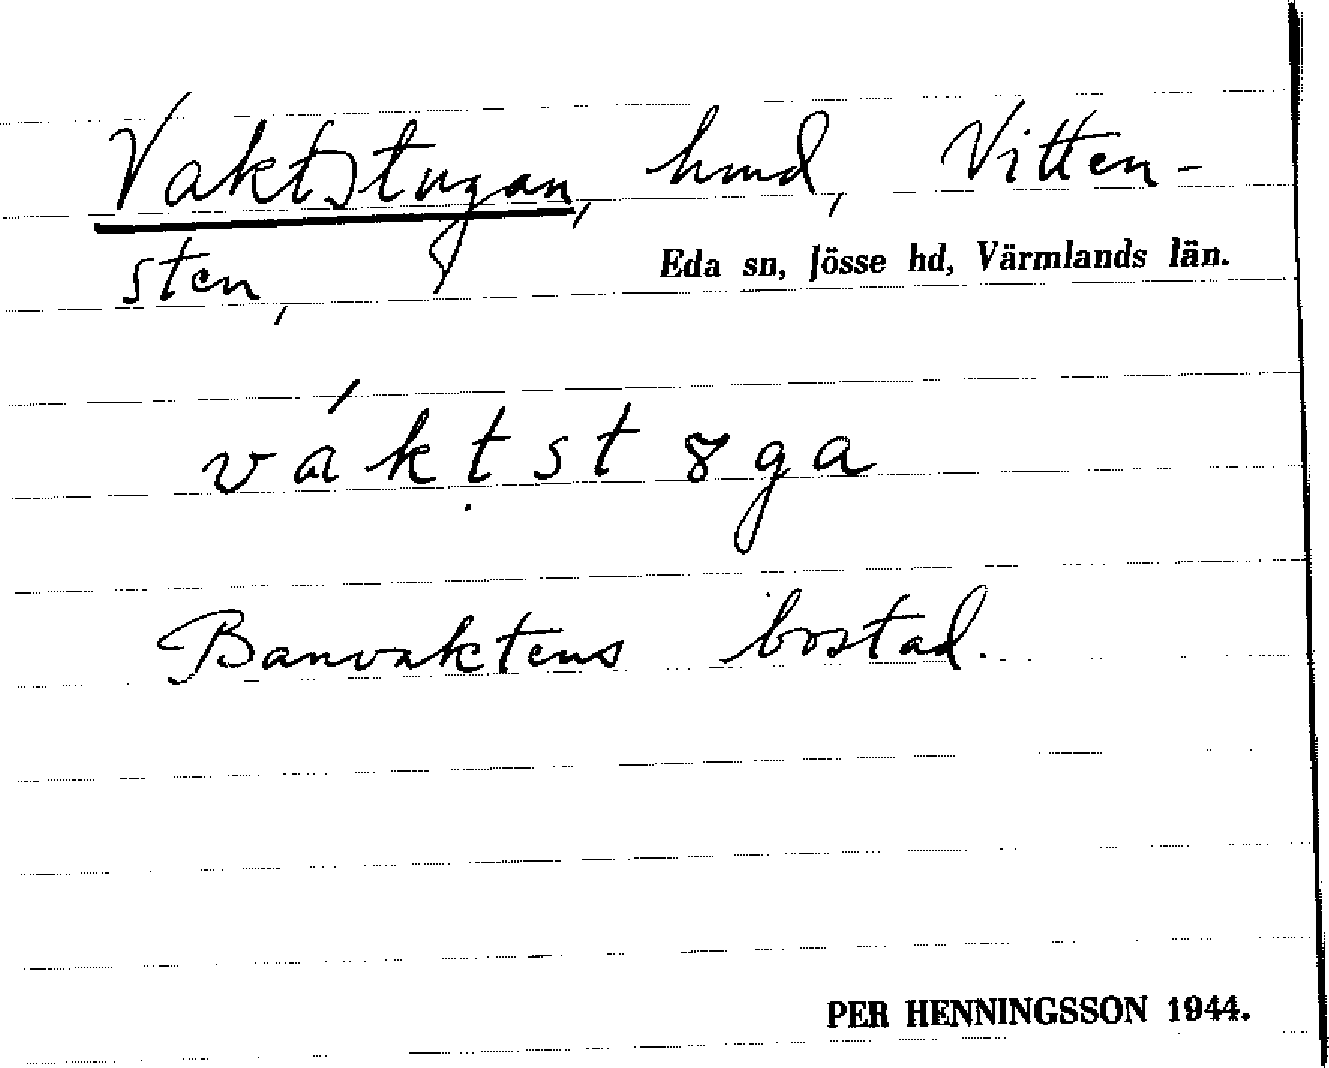 Vaktstugan, hmd, Vitten-
sten,
Eda sn, Jösse hd, Värmlands län.
váktstȣga
Banvaktens bostad.
PER HENNINGSSON 1944.